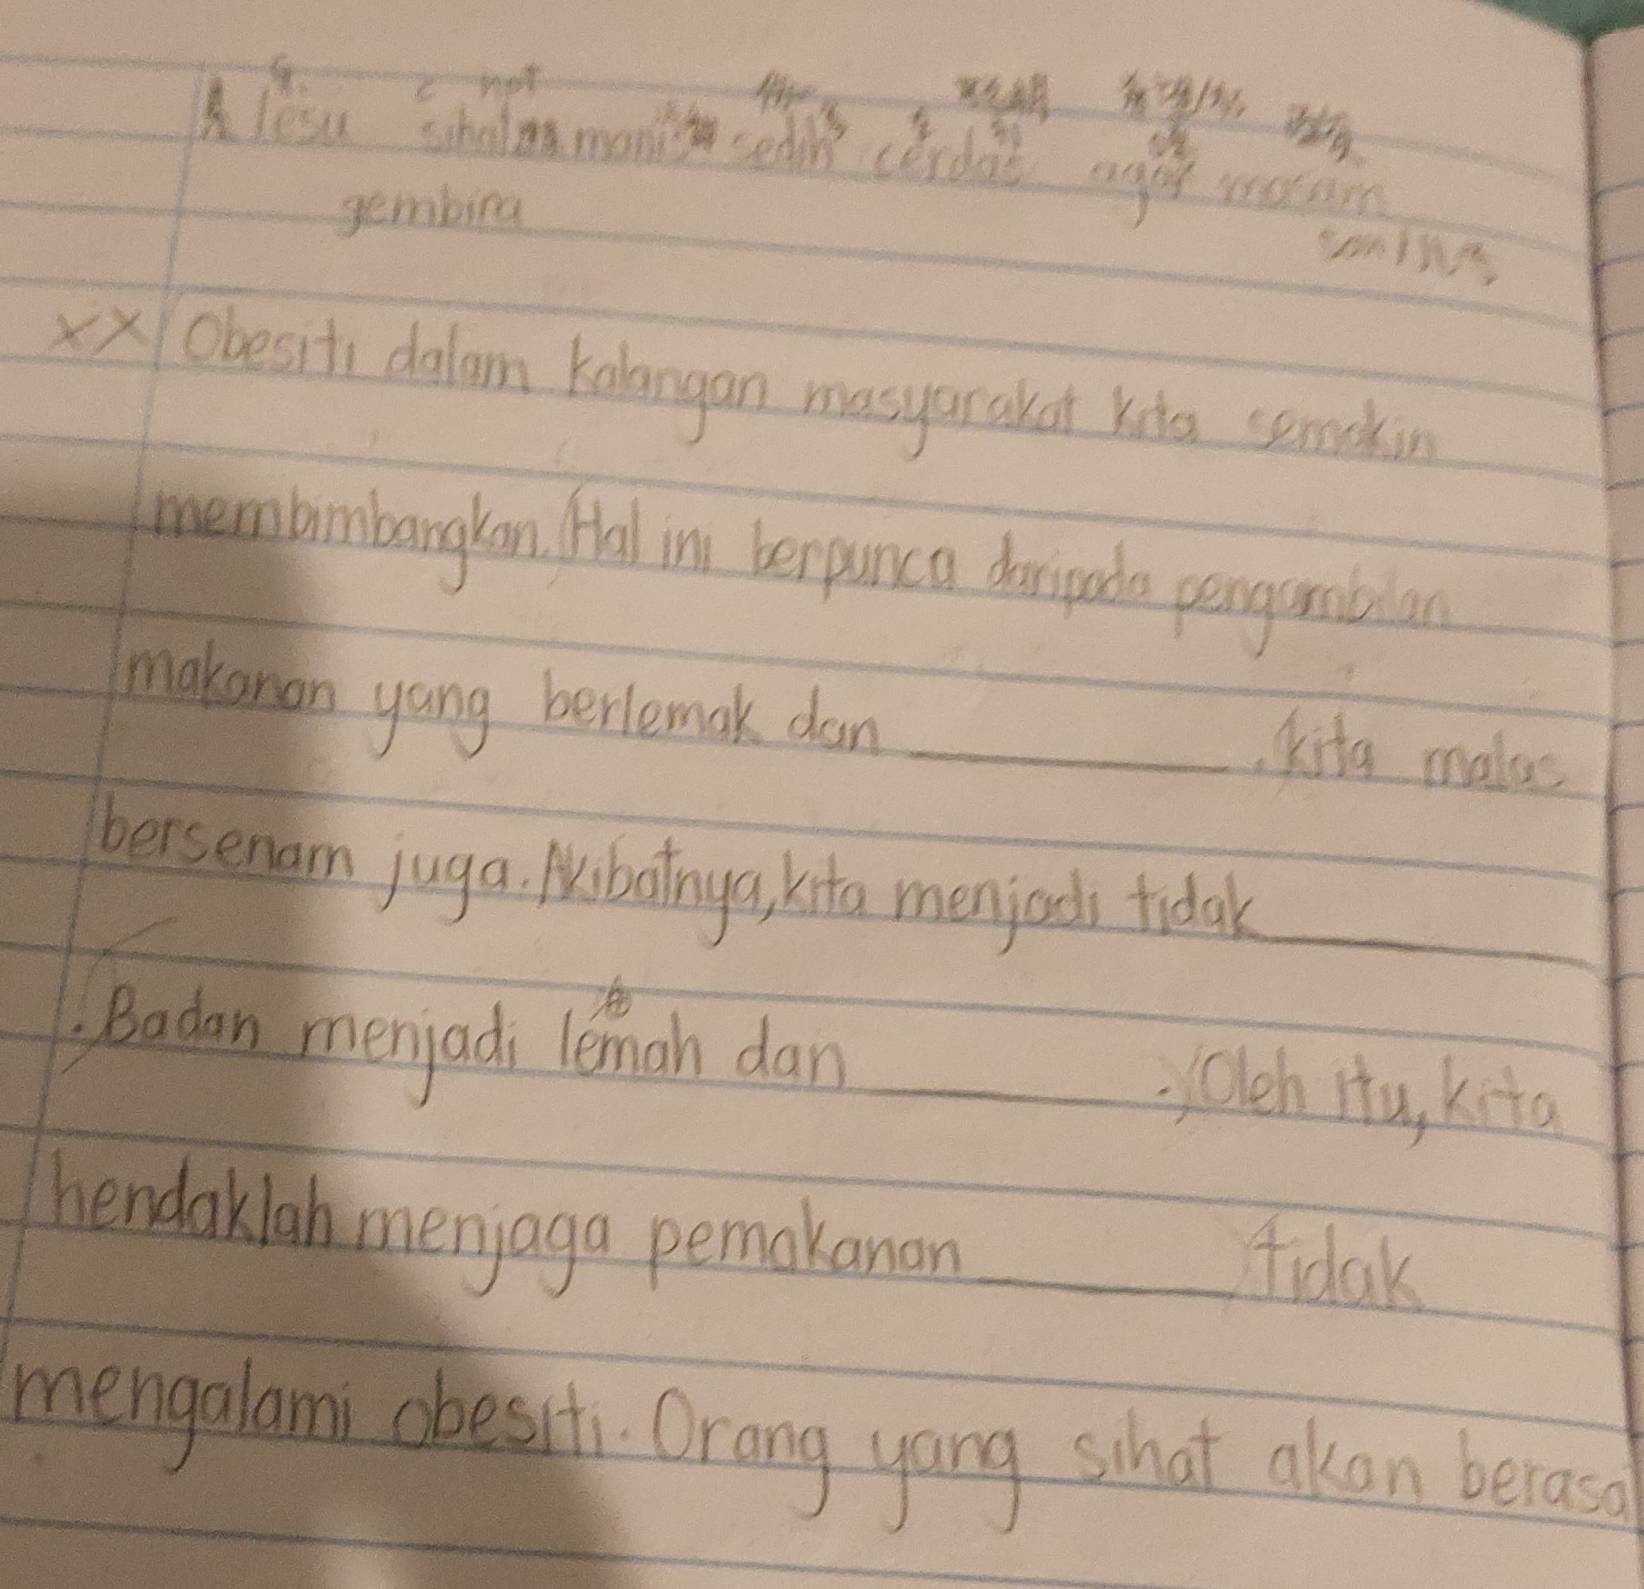 lesu manis sedih cerdas agar masam
gembira
XX Obesiti dalam kalangan masyarakat kita semakin
membimbangkan. Hal ini berpunca daripada pengambilan
makanan yang berlemak dan ______. kita malas
bersenam juga. Akibatnya, kita menjadi tidak ______
. Badan menjadi lemah dan ______. Oleh itu, kita
hendaklah menjaga pemakanan ______ tidak
mengalami obesiti. Orang yang sihat akan berasa